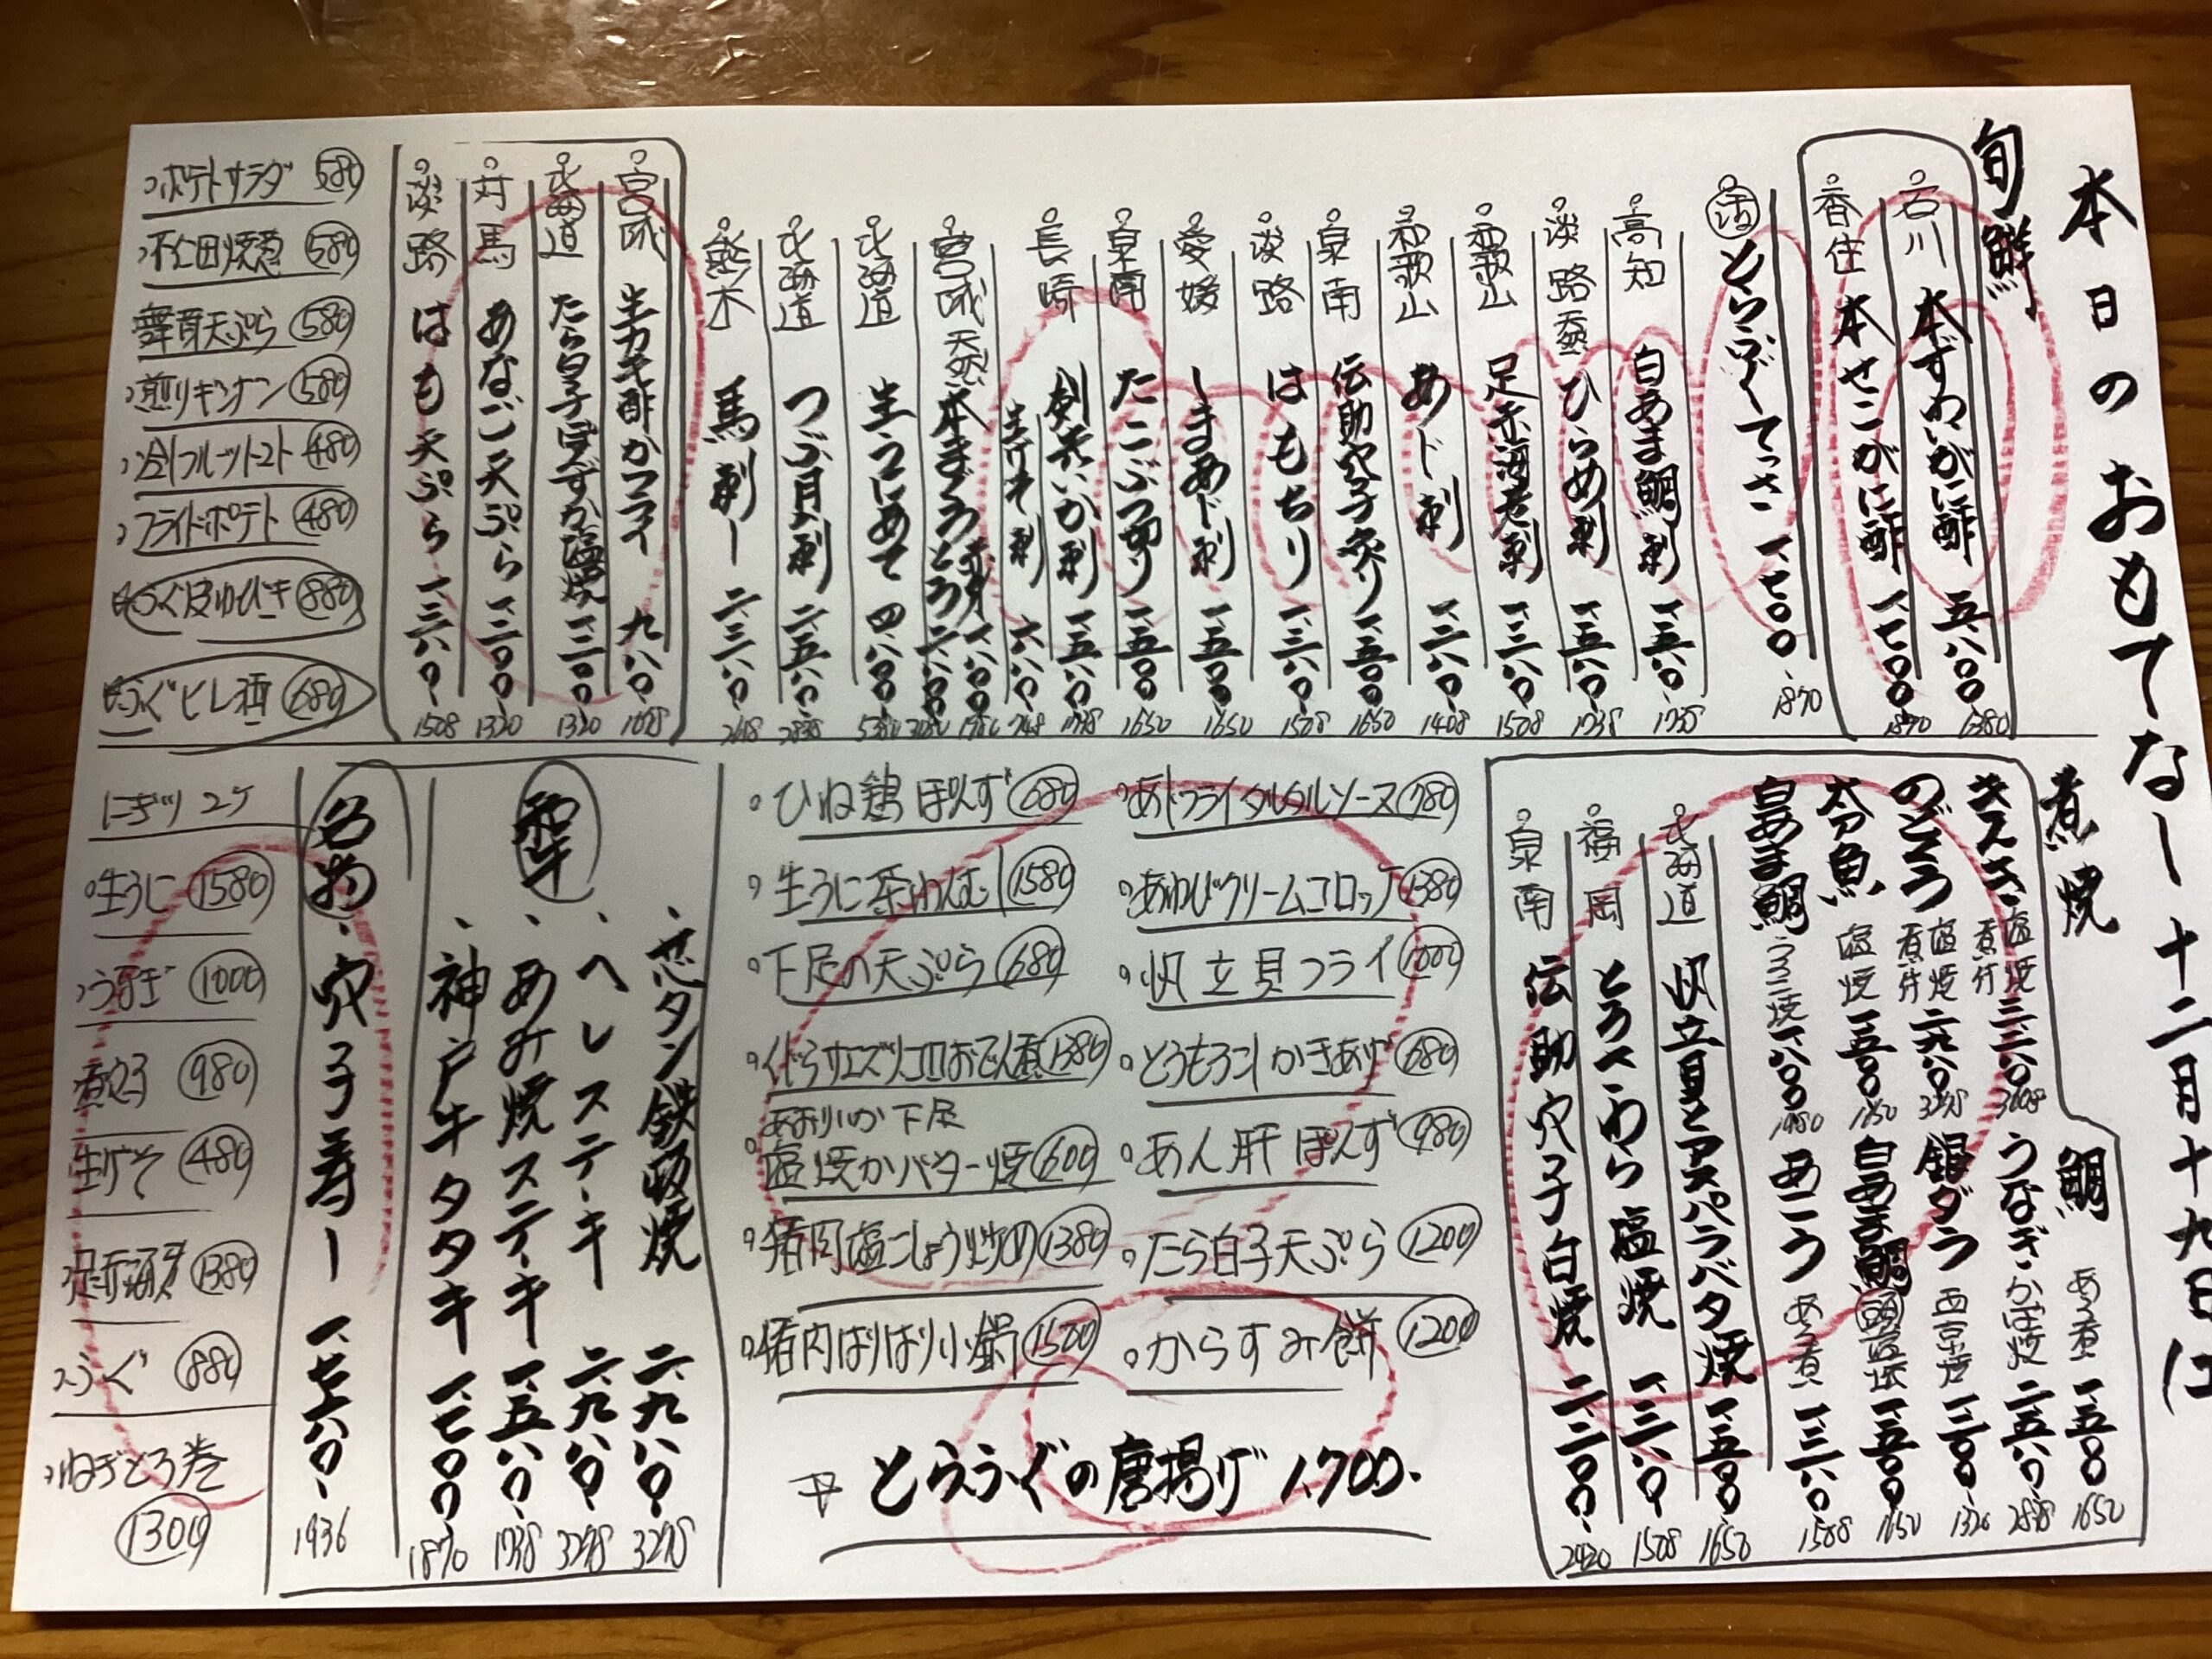 本日のおもてなし 十二月十九日(土
旬鮮
石川 本ずわいがに酢 五、八〇〇 6380
香住 本せこがに酢 一、七〇〇 1870
活 とらふぐてっさ 一、七〇〇 1870
高知 白あま鯛刺 一、五八〇
淡路 ひらめ刺 一、五八〇 1738
和歌山 足赤海老刺 一、三八〇 1508
和歌山 あじ刺 一、二八〇 1408
泉南 伝助穴子炙り 一、五〇〇 1650
淡路 はもちり 一、三八〇 1508
愛媛 しまあじ刺 一、五〇〇 1650
泉南 たこぶつ切り 一、五〇〇 1650
長崎 剣先いか刺 一、五八〇 1738
生げそ刺 六八〇 748
宮城 天然本まぐろ 赤身 一、八〇〇
とろ 二、八〇〇 3080
北海道 生うにあて 四、八〇〇
北海道 つぶ貝刺 二、五八〇 2838
熊本 馬刺し 二、三八〇 2618
宮城 生カキ酢かフライ 九八〇 1078
北海道 たら白子ぽんずか塩焼 一、二〇〇 1320
対馬 あなご天ぷら 一、二〇〇 1320
淡路 はも天ぷら 一、三八〇 1508
ポテトサラダ 580
下仁田焼葱 580
舞茸天ぷら 580
煎りギンナン 580
冷しフルーツトマト 480
フライドポテト 480
ふぐ皮ゆびき 880
ふぐヒレ酒 680
煮焼
鯛 あら煮 一、五〇〇 1650
きずき 塩焼 煮付 三、二八〇 3608
うなぎ かば焼 二、五八〇 2838
のどぐろ 塩焼 煮付 二、九八〇 3278
銀ダラ 西京焼 一、二〇〇
太刀魚 塩焼 一、五〇〇 1650
白あま鯛 頭塩焼 一、五〇〇 1650
白あま鯛 ウロコ焼 一、八〇〇 1980
あこう あら煮 一、三八〇 1508
北海道 帆立貝とアスパラバタ焼 一、五〇〇 1650
福岡 とろさわら塩焼 一、三八〇 1508
泉南 伝助穴子白焼 二、二〇〇 2420
あじフライタルタルソース 780
あわびクリームコロッケ 1380
帆立貝フライ 1000
とうもろこしかきあげ 680
あん肝ぽんず 980
たら白子天ぷら 1200
からすみ餅 1200
ひね鶏ぽんず 680
生うに茶わんむし 1580
下足の天ぷら 680
くじらサエズリコロおでん煮 1380
あおりいか下足
塩焼かバター焼 600
猪肉塩こしょう炒め 1380
猪肉はりはり小鍋 1500
とらふぐの唐揚げ 1,700.
和牛
芯タン鉄板焼 二、九八〇 3278
ヘレステーキ 二、九八〇 3278
あみ焼ステーキ 一、五八〇 1738
神戸牛タタキ 一、七〇〇 1870
名物 穴子寿し 一、七六〇 1936
にぎり 2ケ
生うに 1580
うなぎ 1000
煮穴子 980
生げそ 480
足赤海老 1380
ふぐ 880
ねぎとろ巻
1300